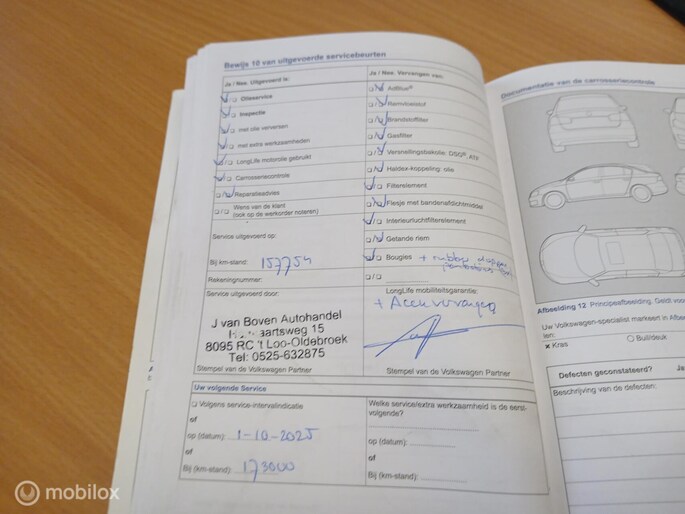 Bewijs 10 van uitgevoerde servicebeurten
Ja / Nee, Uitgevoerd is:
Olieservice
Inspectie
met olie verversen
met extra werkzaamheden
LongLife motorolie gebruikt
Carrosseriecontrole
Reparatieadvies
Wens van de klant
(ook op de werkorder noteren)
Service uitgevoerd op:
Bij km-stand: 157754
Rekeningnummer:
Service uitgevoerd door:
J van Boven Autohandel
8095 RC 't Loo-Oldebroek
Tel: 0525-632875
Stempel van de Volkswagen Partner
Ja / Nee, Vervangen van:
AdBlue®
Remvloeistof
Brandstoffilter
Gasfilter
Versnellingsbakolie: DSG®, ATF
Haldex-koppeling: olie
Filterelement
Flesje met bandenafdichtmiddel
Interieurluchtfilterelement
Getande riem
Bougies + rubber
LongLife mobiliteitsgarantie:
+ Accu vervangen
Stempel van de Volkswagen Partner
Uw volgende Service
Volgens service-intervalindicatie
of
op (datum): 1-10-2025
of
Bij (km-stand): 173000
Welke service/extra werkzaamheid is de eerst-
volgende?
op (datum):
of
Bij (km-stand):
Documentatie van de carrosseriecontrole
Afbeelding 12 Principeafbeelding. Geldt voor
Uw Volkswagen-specialist markeert in Afbee
len:
× Kras
Buil/deuk
Defecten geconstateerd? Ja
Beschrijving van de defecten:
mobilox